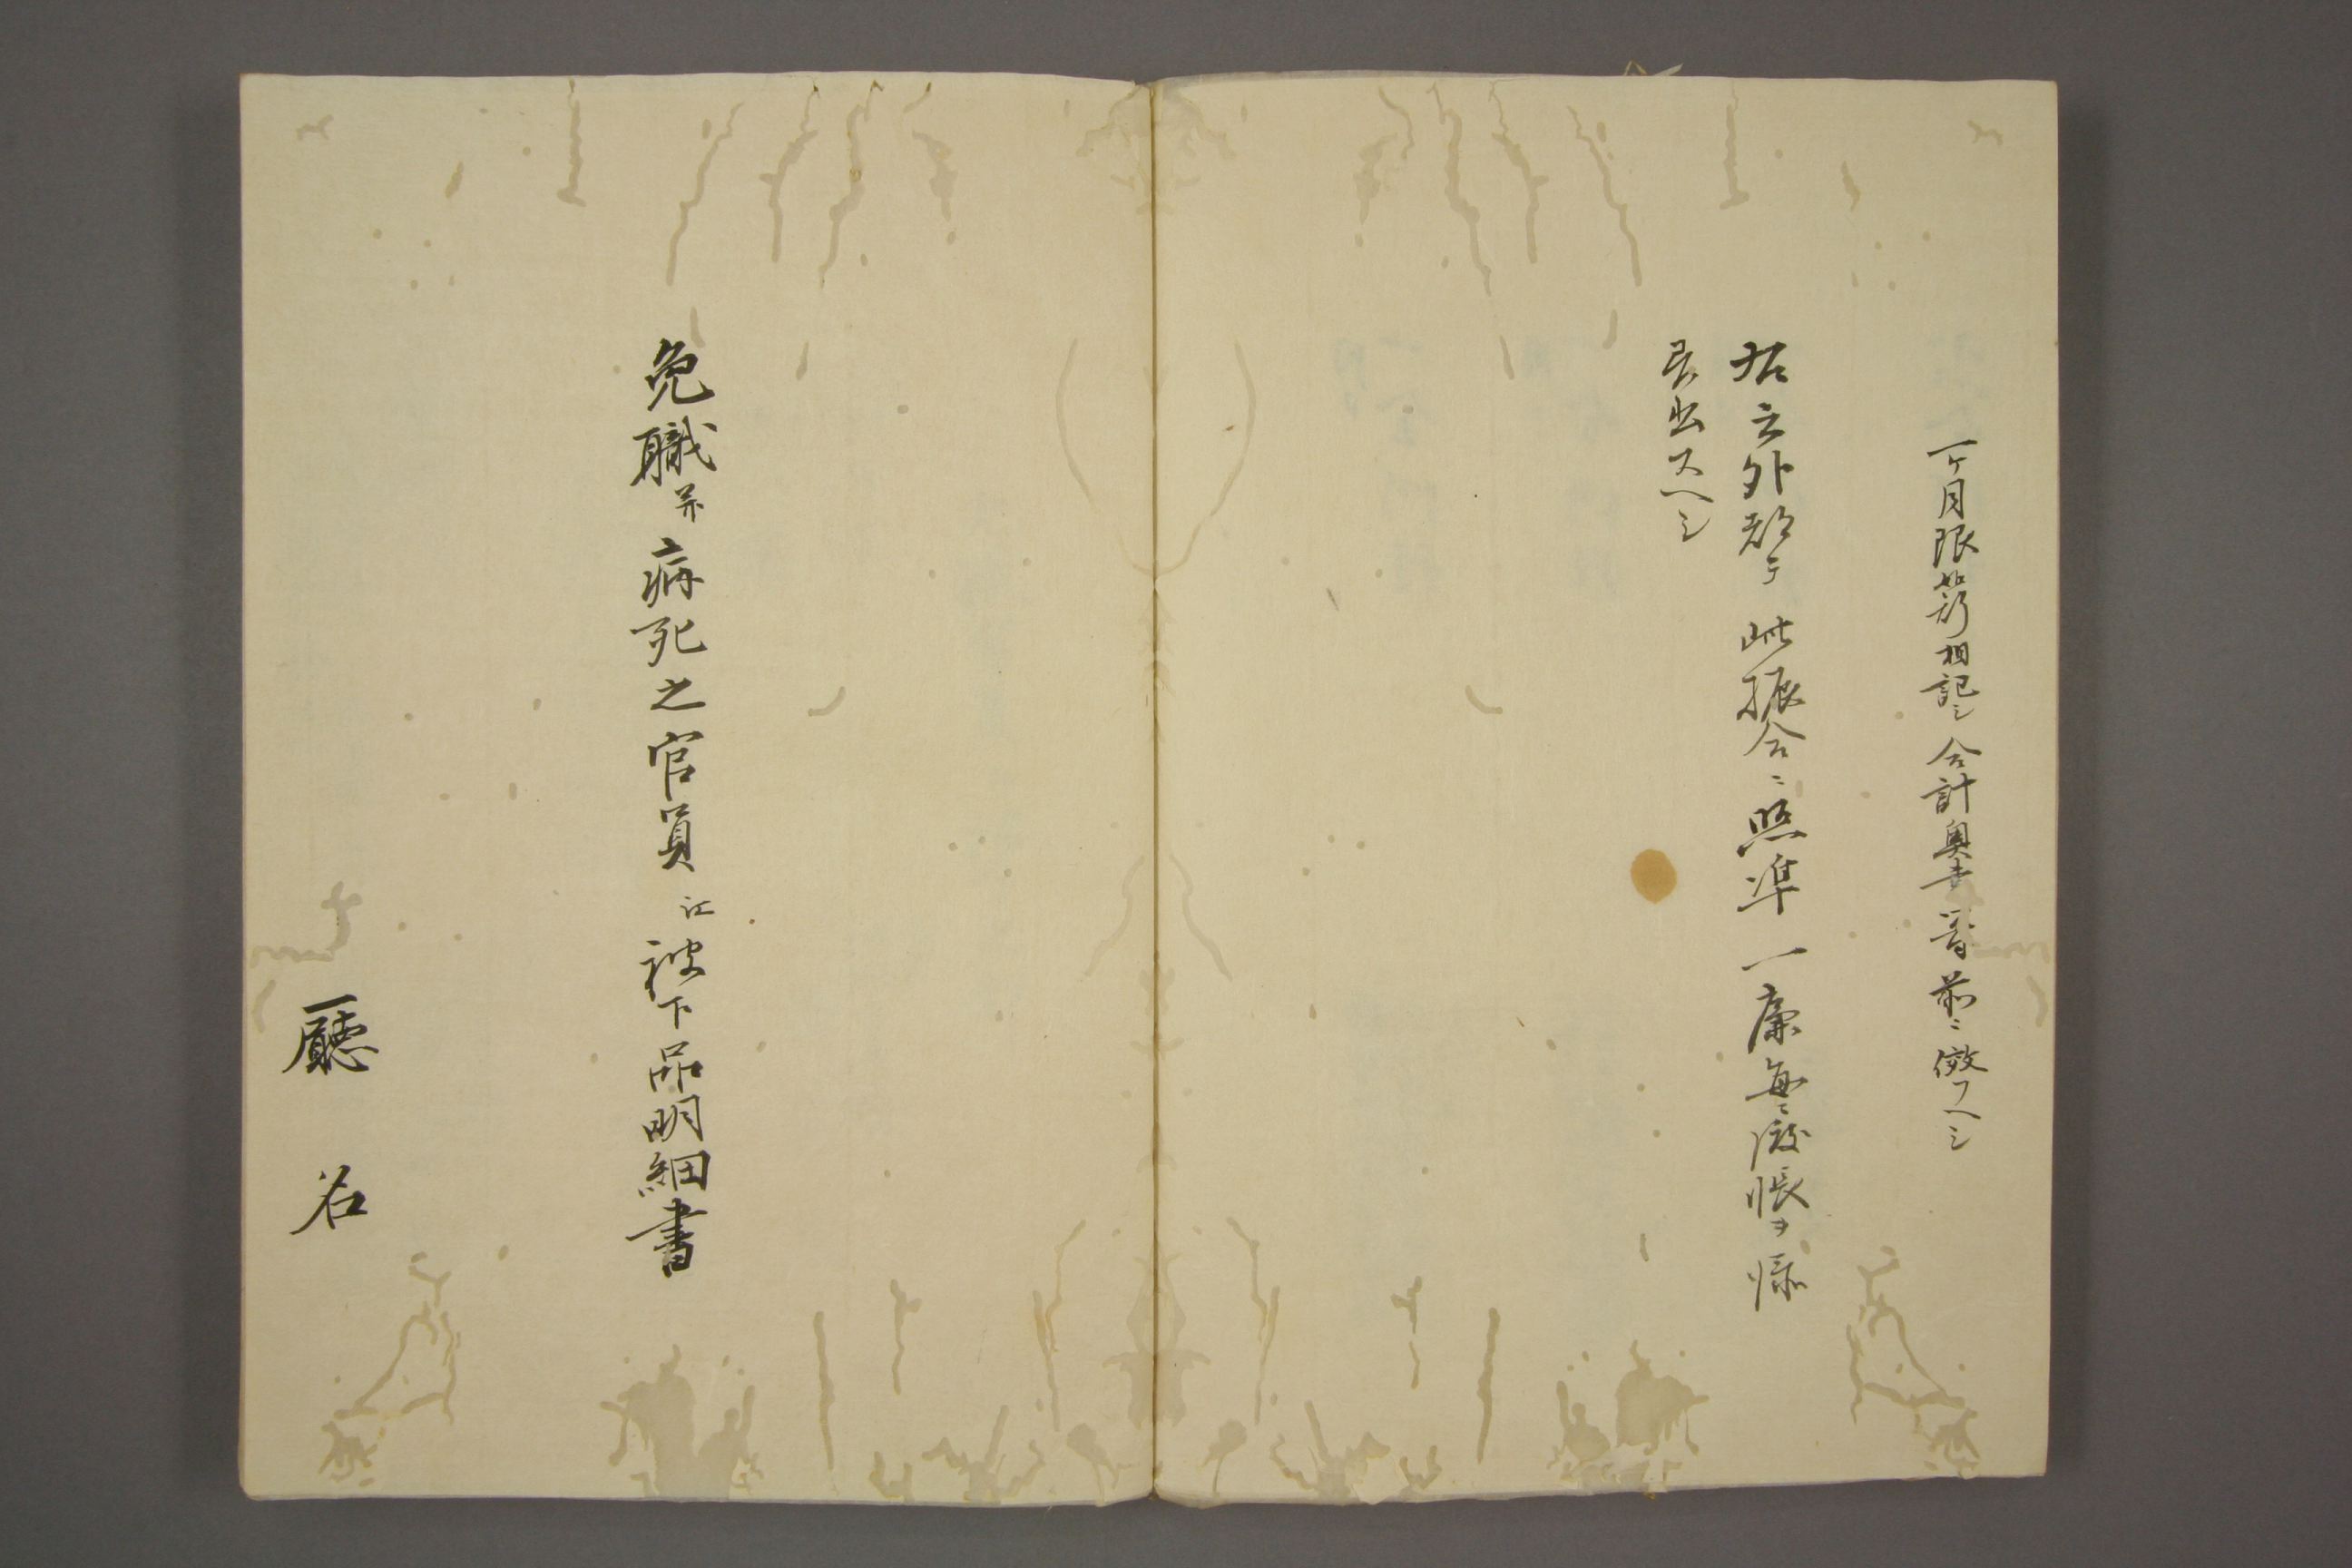 一ヶ月限如斯相記シ合計奥書皆前ニ倣フヘシ
右之外都テ此振合ニ照準一廉毎ニ帳ヲ添
差出スヘシ
免職并病死之官員江被下品明細書
廳名